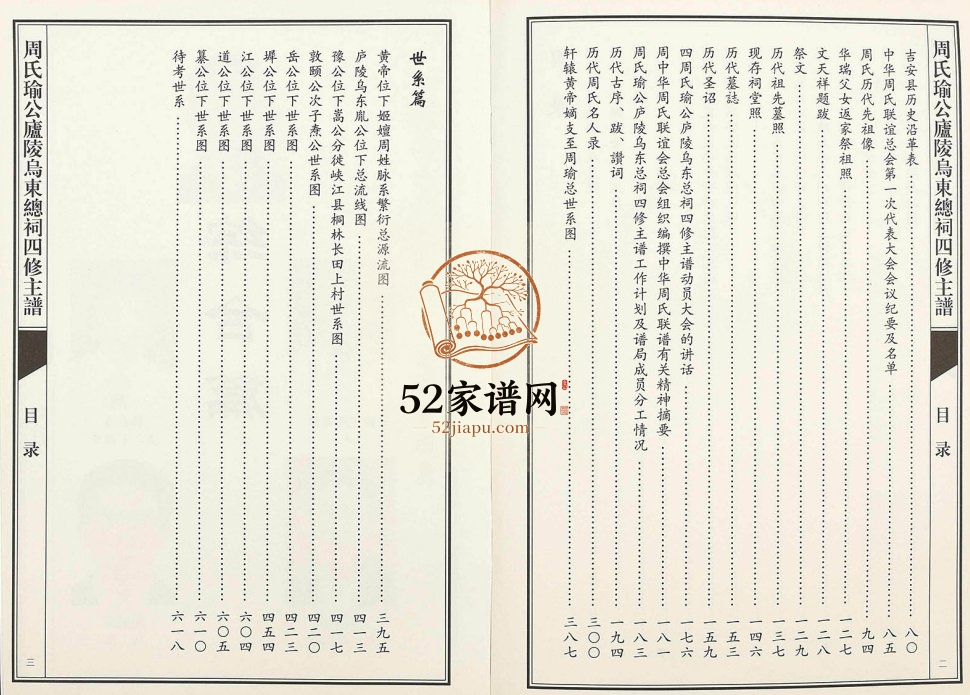 周氏瑜公廬陵烏東總祠四修主譜
目录
二
吉安县历史沿革表……八〇
中华周氏联谊总会第一次代表大会会议纪要及名单……八五
周氏历代先祖像……九四
华瑞父女返家祭祖照……一二七
文天祥题跋……一二八
祭文……一二九
历代祖先墓照……一三六
现存祠堂照……一四六
历代墓誌……一五三
历代圣诏……一五九
四周氏瑜公庐陵乌东总祠四修主谱动员大会的讲话……一七六
周中华周氏联谊会总会组织编撰中华周氏联谱有关精神摘要……一八一
周氏瑜公庐陵乌东总祠四修主谱工作计划及谱局成员分工情况……一八三
历代古序、跋、讚词……一九四
历代周氏名人录……三〇〇
轩辕黄帝嫡支至周瑜总世系图……三八七
世系篇
黄帝位下姬嬗周姓脉系繁衍总源流图……三九五
庐陵乌东胤公位下总流线图……四一三
豫公位下嵩公分徙峡江县桐林长田上村世系图……四一七
敦颐公次子焘公世系图……四二〇
岳公位下世系图……四二三
墀公位下世系图……四五四
江公位下世系图……六〇四
道公位下世系图……六〇五
纂公位下世系图……六一〇
待考世系……六一八
周氏瑜公廬陵烏東總祠四修主譜
目录
三
52家谱网
52jiapu.com